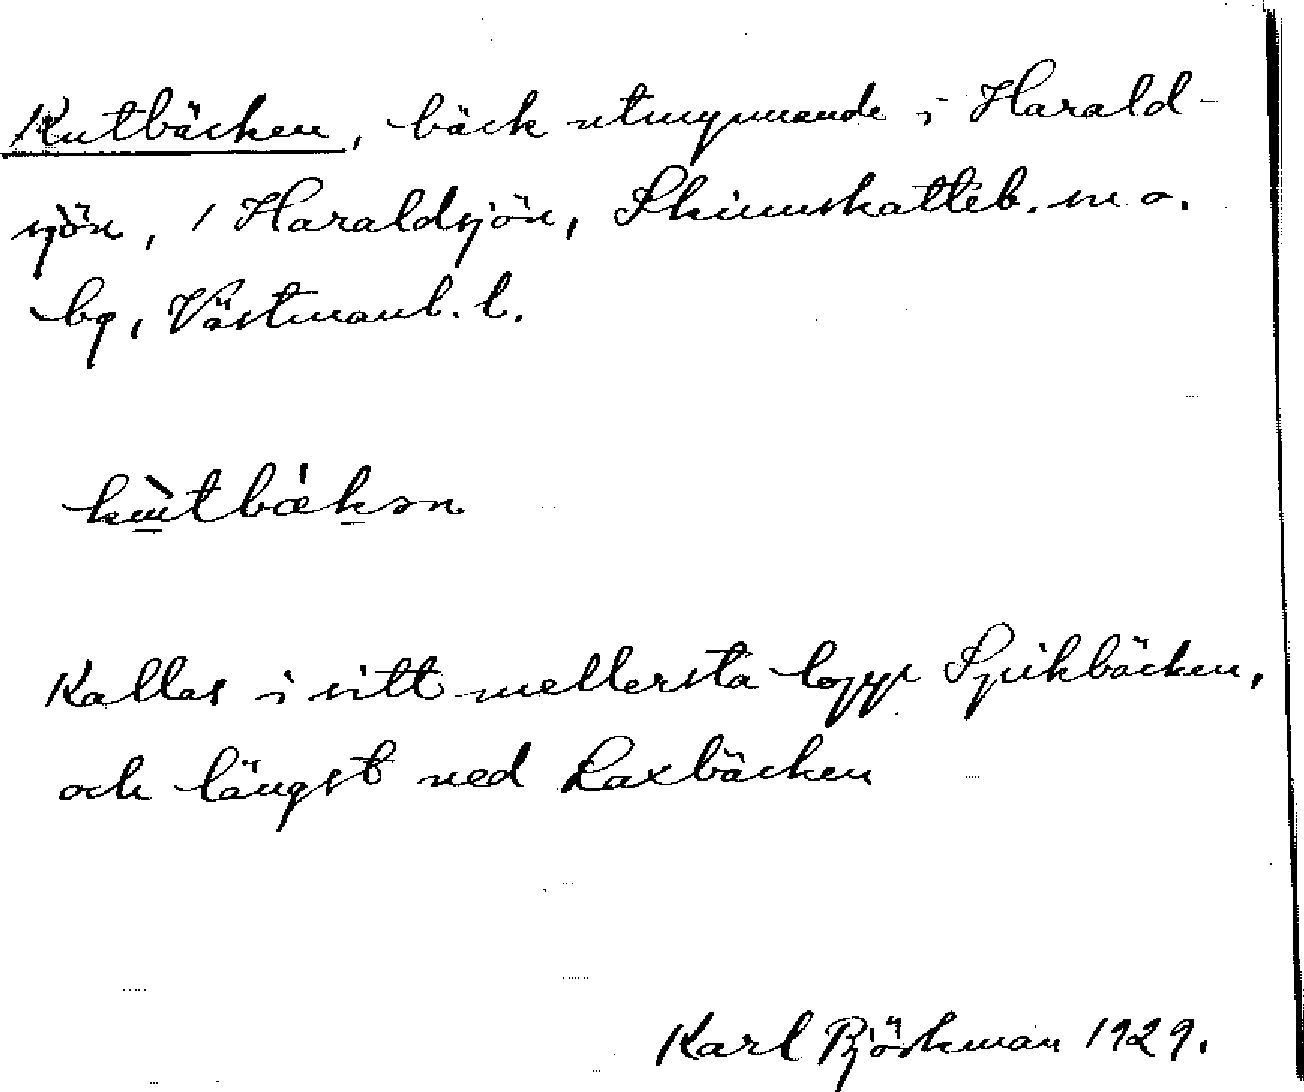 Kutbäcken, bäck utmynnande i Harald-
sjön, 1 Haraldsjön, Skinnskatteb. sn o.
bg, Västmanl. l.
kùtbák
Kallas i sitt mellersta lopp Spikbäcken,
och längst ned Laxbäcken
Karl Björkman 1929.